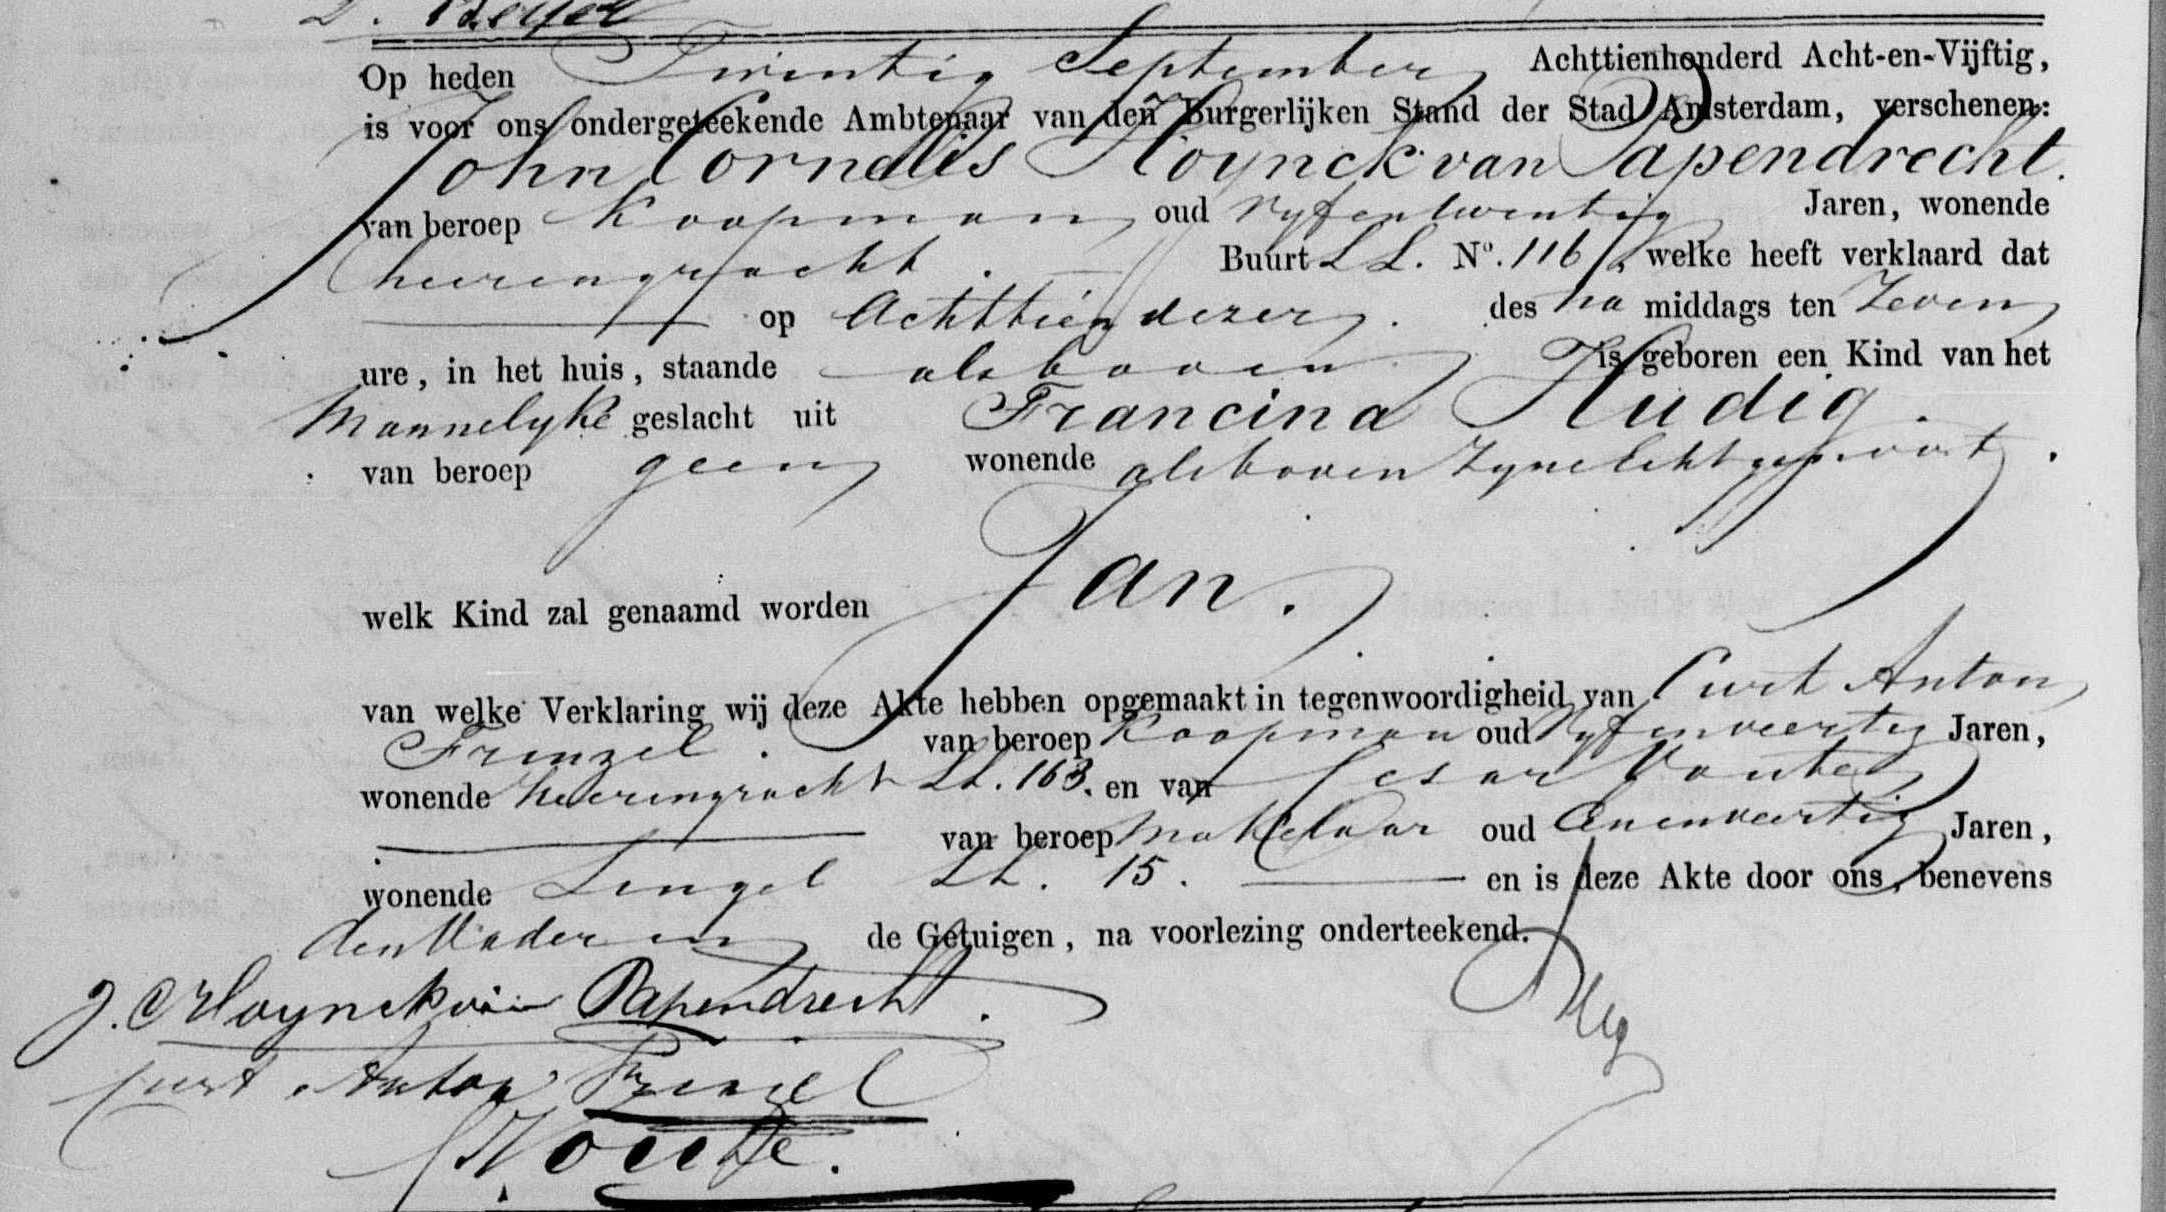 Op heden Twintig September Achttienhonderd Acht-en-Vijftig,
is voor ons ondergeteekende Ambtenaar van den Burgerlijken Stand der Stad Amsterdam, verschenen:
John Cornelis Hoynck van Papendrecht.
van beroep Koopman oud vyfentwintig Jaren, wonende
heerengracht. Buurt LL. No. 116, welke heeft verklaard dat
op Achttien dezer. des na middags ten Zeven
ure, in het huis, staande alsboven is geboren een Kind van het
Mannelyke geslacht uit Francina Hudig.
van beroep geen wonende alsboven Zyne Echtgenoot.
welk Kind zal genaamd worden Jan.
van welke Verklaring wij deze Akte hebben opgemaakt in tegenwoordigheid van Curt Anton
Frenzel. van beroep Koopman oud Vyfenveertig Jaren,
wonende heerengracht LL. 163. en van Cesar Voute
van beroep Makelaar oud Eenenveertig Jaren,
wonende Singel LL. 15. en is deze Akte door ons, benevens
den Vader en de Getuigen, na voorlezing onderteekend.
J. C. Hoynck van Papendrecht.
Curt Anton Frenzel
C Voute.